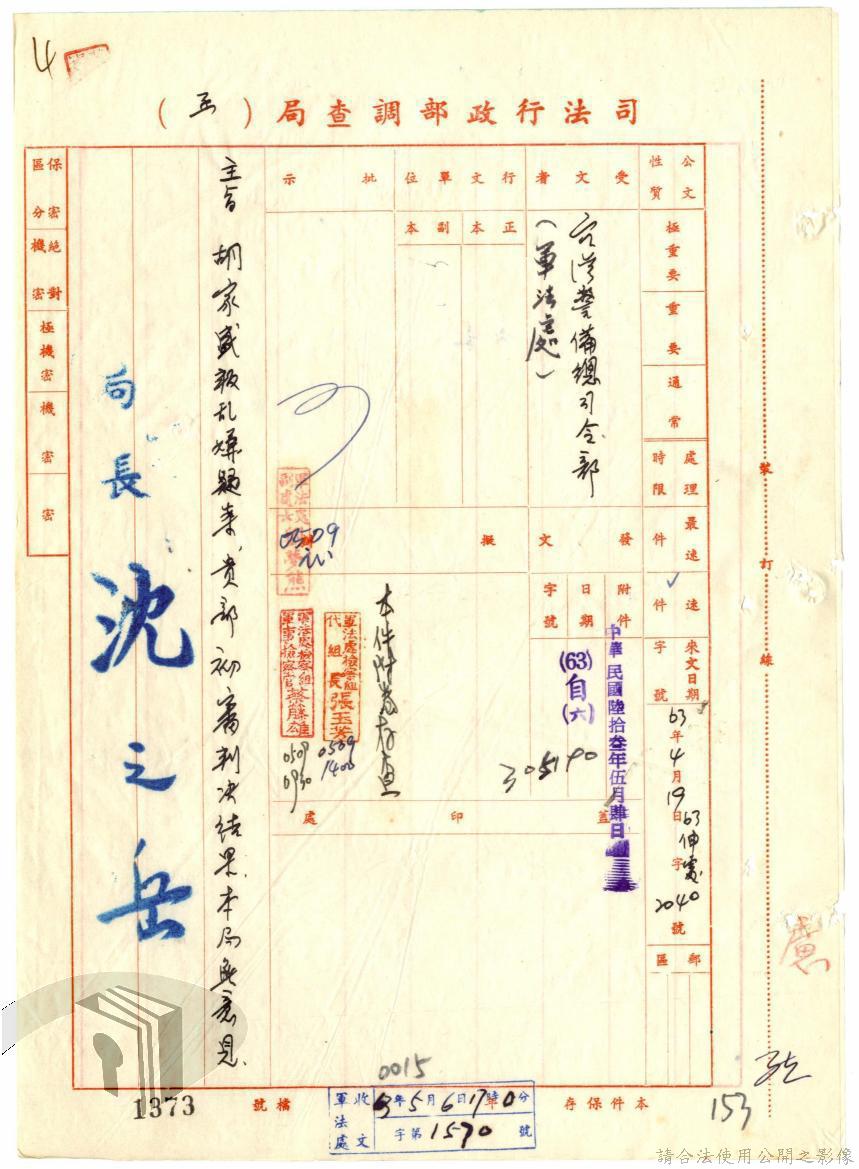 4
司法行政部調查局（函）
公文性質
極重要
重要
通常
處理時限
最速件
速件
來文日期字號
63年4月19日
63
字2040號
郵區
受文者
台灣警備總司令部
（軍法處）
行文單位
正本
副本
批示
發文
附件
日期
中華民國陸拾叁年伍月肆日
字號
(63)自(六)
305190
擬
本件附卷存查
軍法處檢察組
代組長張玉芳
0509
1400
軍法處檢察組
軍事檢察官蔡藤雄
0509
0930
0509
蓋印處
主旨 胡家盛叛乱嫌疑案，貴部初審判決結果，本局無意見。
局長 沈之岳
保密區分
絕對機密
極機密
機密
密
裝訂線
0015
153
本件保存 年
檔號
1373
軍法處
收文
63年5月6日17時0分
字第1570號
請合法使用公開之影像